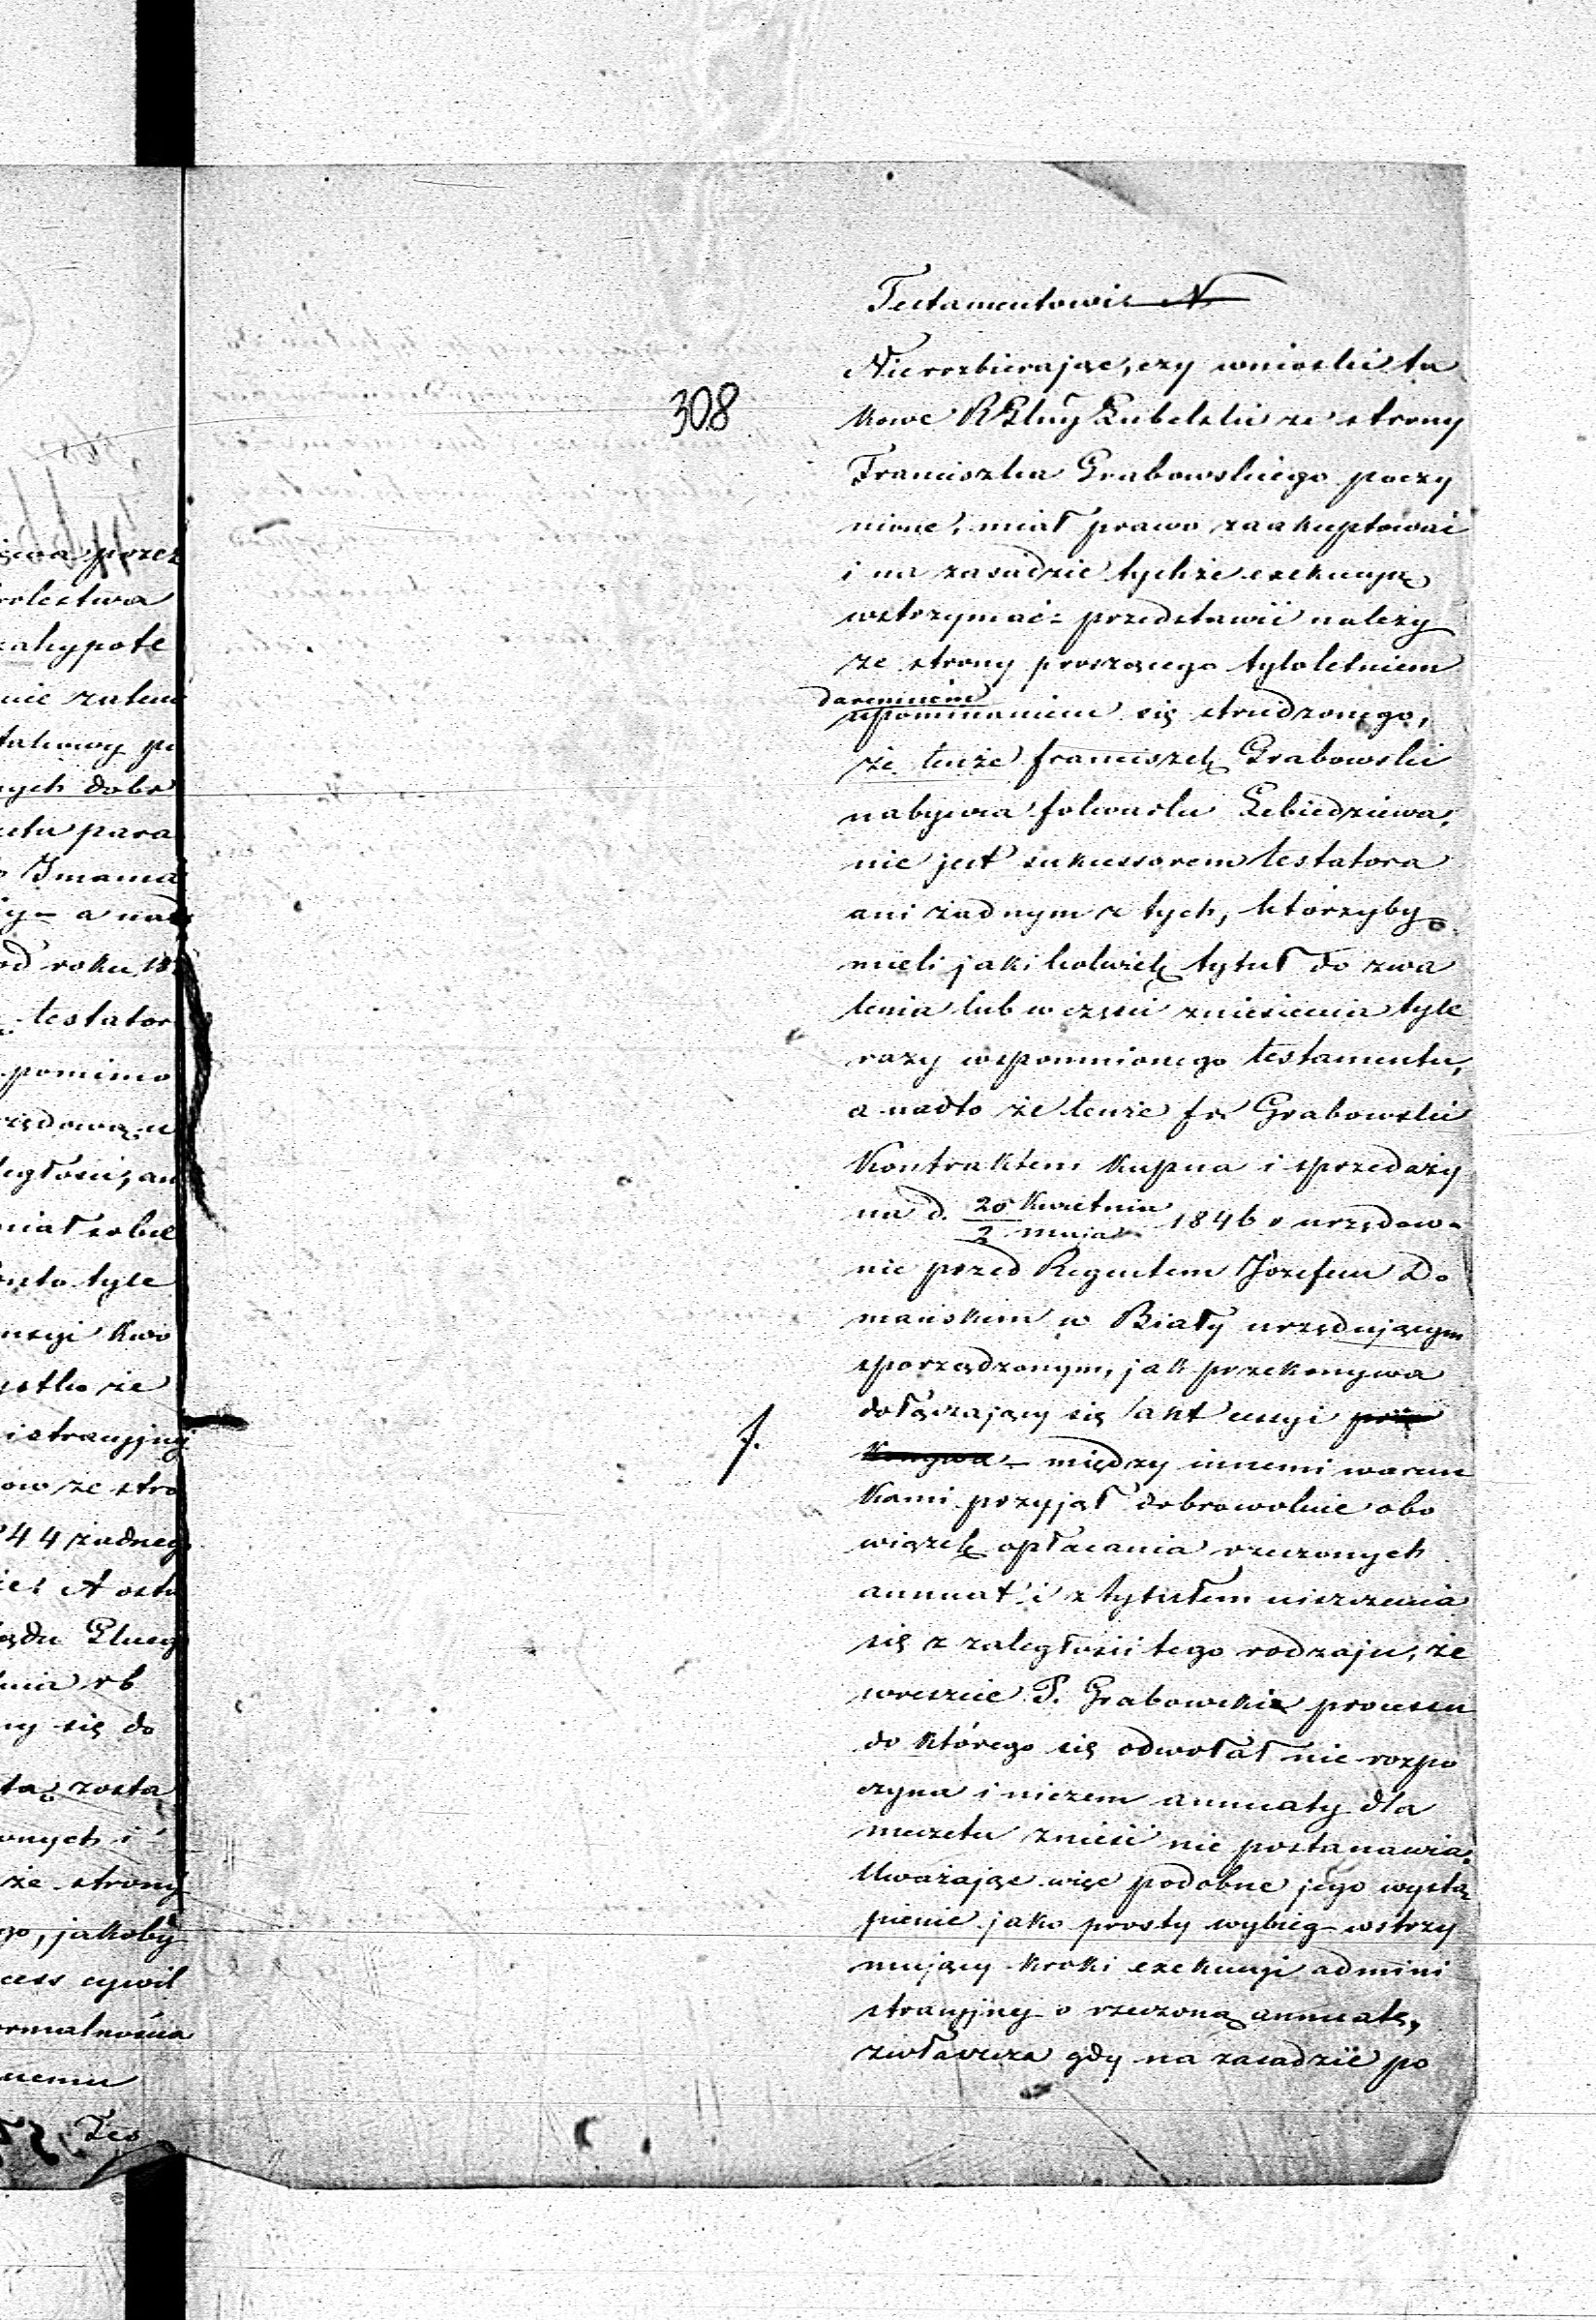 308
Testamentowi
Nierozbierając, czy wnioski ta
kowe RGlny Lubelski ze strony
Franciszka Grabowskiego poczy
nione, miał prawo zaakceptować
i na zasadzie tychże exekucyę
wstrzymać - przedstawić należy
ze strony proszącego tyloletniem
daremnem
upominaniem się strudzonego,
że tenże franciszek Grabowski
nabywca folwarku Lebiedziewa,
nie jest sukcessorem testatora
ani żadnym z tych, którzyby
mieli jaki kolwiek tytuł do zwa
lenia lub w części zniesienia tyle
razy wspomnionego testamentu,
a nadto że tenże fr Grabowski
Kontraktem Kupna i sprzedaży
na d. 20 Kwietnia
2 maja 1846 r urzędow-
nie przed Regentem Józefem Do
mańskim w Biały urzędującym
sporządzonym, jak przekonywa
dołączający się akt cessyi prze
konywa - między innemi warun
kami przyjął dobrowolnie obo
wiązek opłacania rzeczonych
annuat i z tytułem uiszczenia
się z zaległości tego rodzaju, że
wreszcie P. Grabowski processu
do którego się odwołał nie rozpo
czyna i niczem annuaty dla
meczetu znieść nie postanawia.
Uważając więc podobne jego wystą
pienie jako prosty wybieg wstrzy
mujący kroki exekucyi admini
stracyjny o rzeczoną annuatę,
zwłaszcza gdy na zasadzie po
przez
olestwa
zahypote
nych dobr
para
a nad
od roku 18
testator
pomimo
tyle
że
istracyjny
ze stro
44 żadnego
się do
zosta
onych i
ze strony
go, jakoby
cess cywil
ormalnościa
nemu
Tes